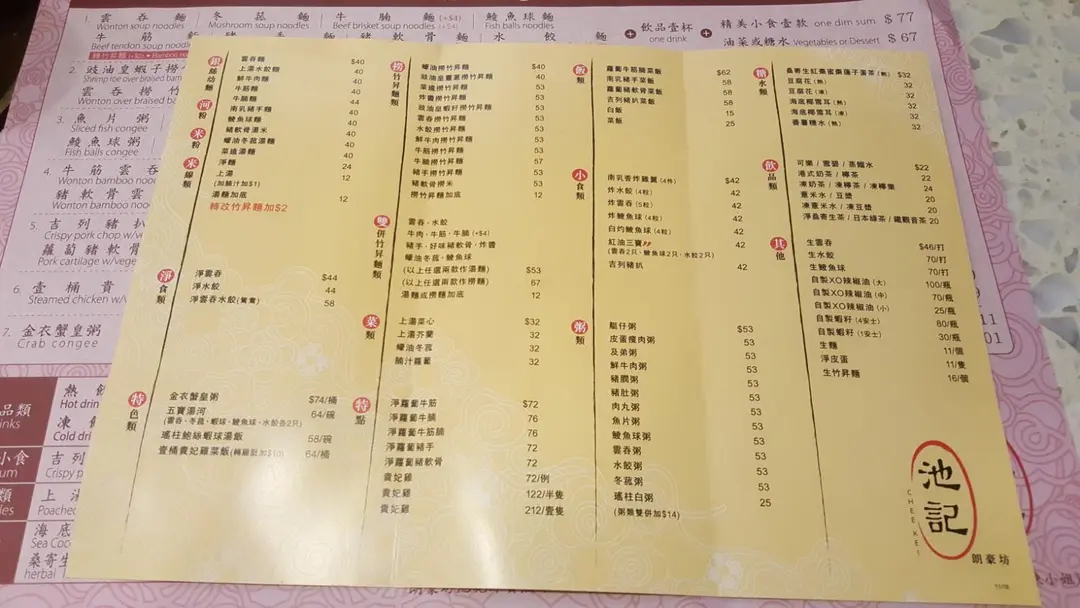 1. 雲 吞 麵
Wonton soup noodles
冬 菇 麵
Mushroom soup noodles
牛 腩 麵 (+$4)
Beef brisket soup noodles
鯪 魚 球 麵
Fish balls noodles
牛 筋 麵
Beef tendon soup noodles
豬 軟 骨 麵
水 餃 麵
飲品壹杯
one drink
精美小食壹款 one dim sum $ 77
油菜或糖水 Vegetables or Dessert $ 67
2. 豉油皇蝦子撈
雲 吞 撈 竹
Wonton over braised bam
3. 魚 片 粥
Sliced fish congee
鯪 魚 球 粥
Fish balls congee
4. 牛 筋 雲 吞
Wonton bamboo nood
豬 軟 骨 雲
Wonton bamboo nood
5. 吉 列 豬 扒
Crispy pork chop w/ve
蘿 蔔 豬 軟 骨
Pork cartilage w/vege
6. 壹 桶 貴
Steamed chicken w/v
7. 金衣蟹皇粥
Crab congee
品類
inks
熱 飲
Hot drin
凍 飲
Cold drin
小食
um
吉 列
Crispy p
類
les
上 湯
Poached
海 底
Sea Coco
桑寄生
herbal
銀絲幼麵 河粉 米粉 米線類
雲吞麵 $40
上湯水餃麵 40
鮮牛肉麵 40
牛筋麵 40
牛腩麵 44
南乳豬手麵 40
鯪魚球麵 40
豬軟骨湯米 40
蠔油冬菇湯麵 40
菜遠湯麵 40
淨麵 24
上湯 12
(加腩汁加$1)
湯麵加底 12
轉改竹昇麵加$2
淨食類
淨雲吞 $44
淨水餃 44
淨雲吞水餃(鴛鴦) 58
特色類
金衣蟹皇粥 $74/桶
五寶湯河 64/碗
(雲吞、冬菇、蝦球、鯪魚球、水餃各2只)
瑤柱鮑絲蝦球湯飯 58/碗
壹桶貴妃雞菜飯(轉雞髀加$10) 64/桶
撈竹昇麵類
蠔油撈竹昇麵 $40
豉油皇薑蔥撈竹昇麵 40
菜遠撈竹昇麵 53
炸醬撈竹昇麵 53
豉油皇蝦籽撈竹昇麵 53
雲吞撈竹昇麵 53
水餃撈竹昇麵 53
鮮牛肉撈竹昇麵 53
牛筋撈竹昇麵 53
牛腩撈竹昇麵 57
豬手撈竹昇麵 53
豬軟骨撈米 53
撈竹昇麵加底 12
雙併竹昇麵類
雲吞、水餃
牛肉、牛筋、牛腩 (+$4)
豬手、好味豬軟骨、炸醬
蠔油冬菇、鯪魚球
(以上任選兩款作湯麵) $53
(以上任選兩款作撈麵) 67
湯麵或撈麵加底 12
菜類
上湯菜心 $32
上湯芥蘭 32
蠔油冬菇 32
腩汁蘿蔔 32
特點
淨蘿蔔牛筋 $72
淨蘿蔔牛腩 76
淨蘿蔔牛筋腩 76
淨蘿蔔豬手 72
淨蘿蔔豬軟骨 72
貴妃雞 72/例
貴妃雞 122/半隻
貴妃雞 212/壹隻
飯類
蘿蔔牛筋腩菜飯 $62
南乳豬手菜飯 58
蘿蔔豬軟骨菜飯 58
吉列豬扒菜飯 58
白飯 15
菜飯 25
小食類
南乳香炸雞翼 (4件) $42
炸水餃 (4粒) 42
炸雲吞 (5粒) 42
炸鯪魚球 (4粒) 42
白灼鯪魚球 (4粒) 42
紅油三寶 42
(雲吞2只、鯪魚球2只、水餃2只)
吉列豬扒 42
粥類
艇仔粥 $53
皮蛋瘦肉粥 53
及弟粥 53
鮮牛肉粥 53
豬膶粥 53
豬肚粥 53
肉丸粥 53
魚片粥 53
鯪魚球粥 53
雲吞粥 53
水餃粥 53
冬菰粥 53
瑤柱白粥 25
(粥類雙併加$14)
糖水類
桑寄生紅棗蜜棗蓮子蛋茶 (熱) $32
豆腐花 (熱) 32
豆腐花 (凍) 32
海底椰雪耳 (熱) 32
海底椰雪耳 (凍) 32
番薯糖水 (熱) 32
飲品類
可樂 / 雪碧 / 蒸餾水 $22
港式奶茶 / 檸茶 22
凍奶茶 / 凍檸茶 / 凍檸樂 24
薏米水 / 豆漿 20
凍薏米水 / 凍豆漿 20
淨桑寄生茶 / 日本綠茶 / 鐵觀音茶 20
其他
生雲吞 $46/打
生水餃 70/打
生鯪魚球 70/打
自製XO辣椒油 (大) 100/瓶
自製XO辣椒油 (中) 70/瓶
自製XO辣椒油 (小) 25/瓶
自製蝦籽 (4安士) 80/瓶
自製蝦籽 (1安士) 30/瓶
生麵 11/個
淨皮蛋 11/隻
生竹昇麵 16/個
池記
CHEE KEI
朗豪坊